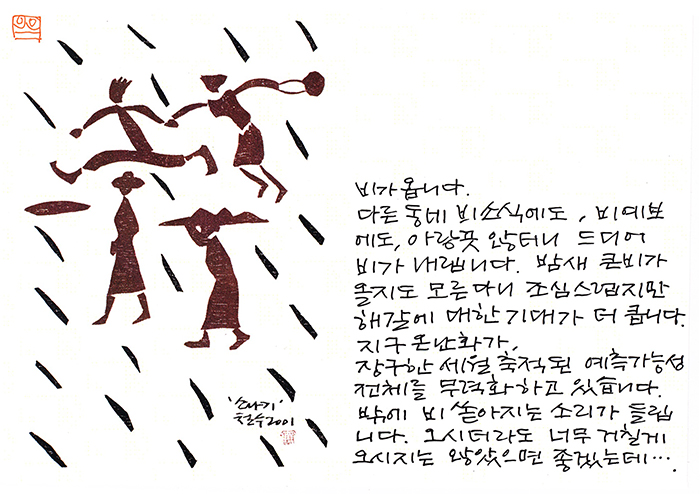 비가 옵니다.
다른 동네 비소식에도, 비예보
에도, 아랑곳 않터니 드디어
비가 내립니다. 밤새 큰비가
올지도 모른다니 조심스럽지만
해갈에 대한 기대가 더 큽니다.
지구온난화가,
장구한 세월 축적된 예측가능성
전체를 무력화하고 있습니다.
밖에 비 쏟아지는 소리가 들립
니다. 오시더라도 너무 거칠게
오시지는 않았으면 좋겠는데….
'소나기'
철수 2001